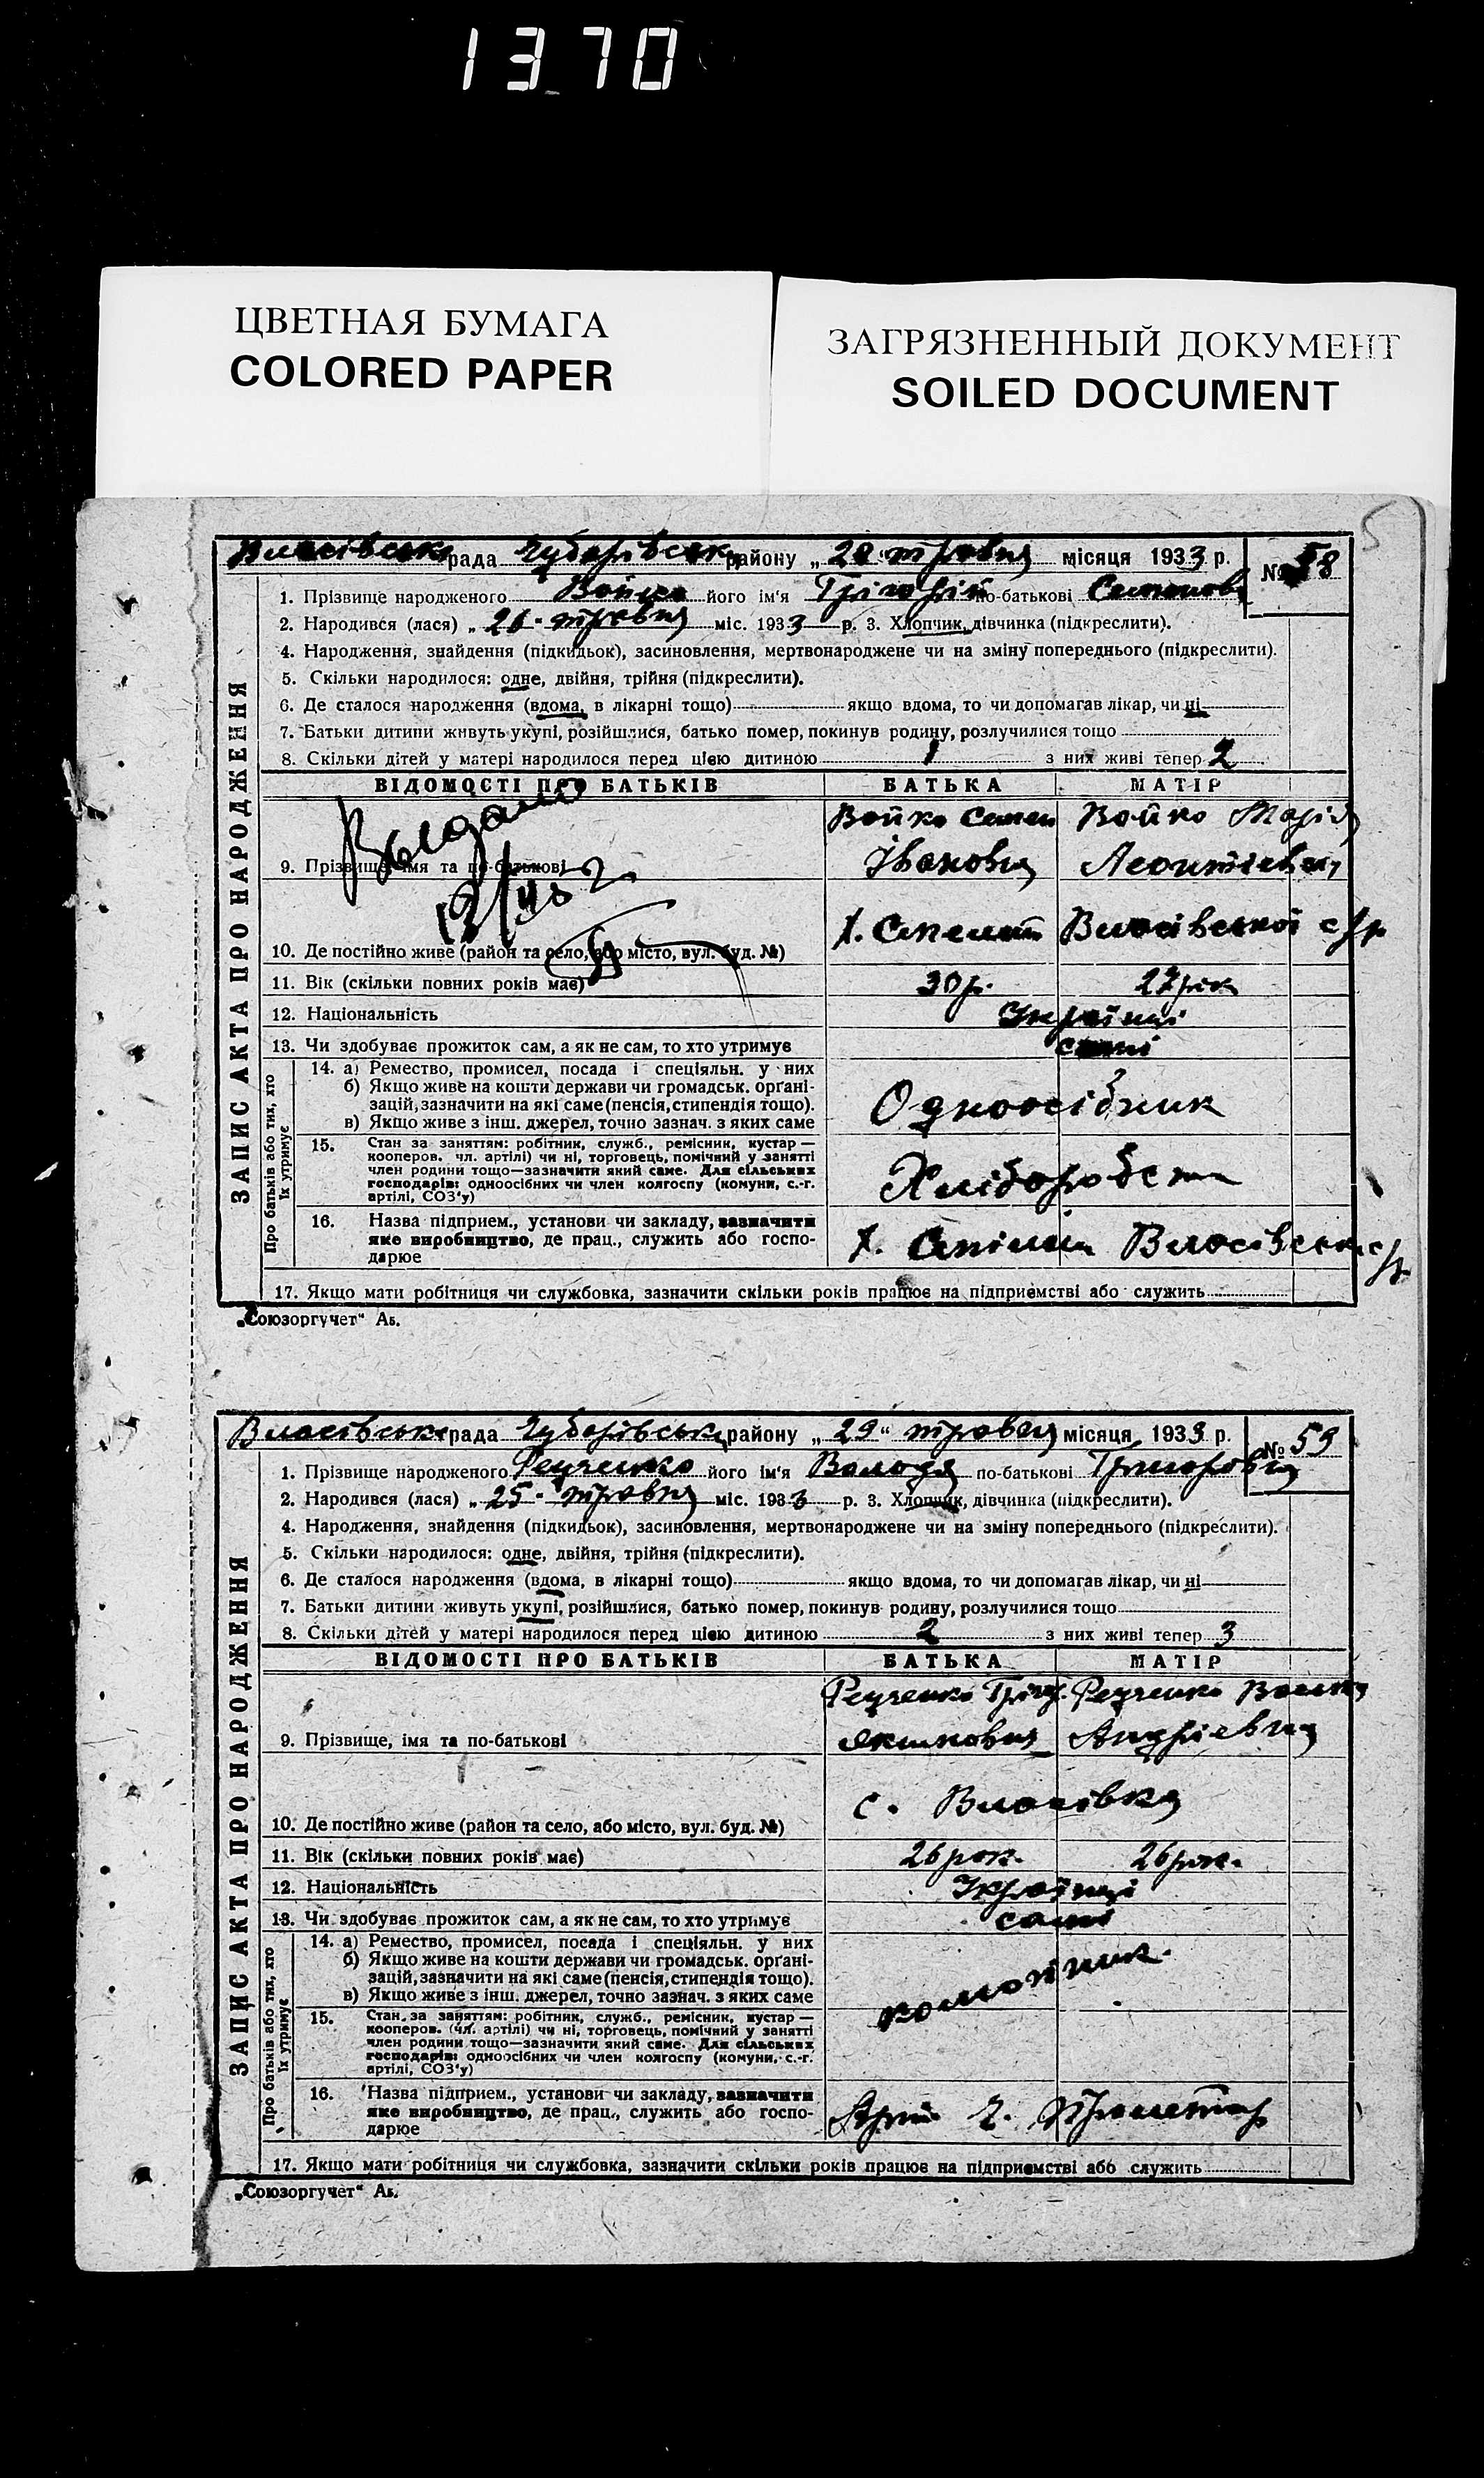 1370
ЦВЕТНАЯ БУМАГА
COLORED PAPER
ЗАГРЯЗНЕННЫЙ ДОКУМЕНТ
SOILED DOCUMENT
5
Власівська рада району „28“ травня місяця 1933 р. № 58
ЗАПИС АКТА ПРО НАРОДЖЕННЯ
1. Прізвище народженого Войко його ім'я Грігорій по-батькові
2. Народився (лася) „26“ травня міс. 1933 р. 3. Хлопчик, дівчинка (підкреслити).
4. Народження, знайдення (підкидьок), засиновлення, мертвонароджене чи на зміну попереднього (підкреслити).
5. Скільки народилося: одне, двійня, трійня (підкреслити).
6. Де сталося народження (вдома, в лікарні тощо) якщо вдома, то чи допомагав лікар, чи ні
7. Батьки дитини живуть укупі, розійшлися, батько помер, покинув родину, розлучилися тощо
8. Скільки дітей у матері народилося перед цією дитиною 1 з них живі тепер 2
ВІДОМОСТІ ПРО БАТЬКІВ БАТЬКА МАТІР
Войко Семен Войко Марія
9. Прізвище, імя та по-батькові Івановия Леонтієвня
10. Де постійно живе (район та село, або місто, вул. буд. №) Власівської с/р
11. Вік (скільки повних років має) 30 р. 27 рік
12. Національність Українці
13. Чи здобуває прожиток сам, а як не сам, то хто утримує самі
Про батьків або тих, хто їх утримує
14. а) Ремество, промисел, посада і спеціяльн. у них
б) Якщо живе на кошти держави чи громадськ. орґані-
зацій, зазначити на які саме (пенсія, стипендія тощо).
в) Якщо живе з інш. джерел, точно зазнач. з яких саме
Одноосібник
15. Стан за заняттям: робітник, служб., ремісник, кустар —
кооперов. чл. артілі) чи ні, торговець, помічний у занятті
член родини тощо—зазначити який саме. Для сільських
господарів: одноосібних чи член колгоспу (комуни, с.-г.
артілі, СОЗ'у)
16. Назва підприєм., установи чи закладу, зазначити
яке виробництво, де прац., служить або госпо-
дарюе
17. Якщо мати робітниця чи службовка, зазначити скільки років працює на підприємстві або служить
„Союзоргучет“ Аб.
Власівська рада району „29“ травня місяця 1933 р. № 59
ЗАПИС АКТА ПРО НАРОДЖЕННЯ
1. Прізвище народженого його ім'я Володя по-батькові
2. Народився (лася) „25“ травня міс. 1933 р. 3. Хлопчик, дівчинка (підкреслити).
4. Народження, знайдення (підкидьок), засиновлення, мертвонароджене чи на зміну попереднього (підкреслити).
5. Скільки народилося: одне, двійня, трійня (підкреслити).
6. Де сталося народження (вдома, в лікарні тощо) якщо вдома, то чи допомагав лікар, чи ні
7. Батьки дитини живуть укупі, розійшлися, батько помер, покинув родину, розлучилися тощо
8. Скільки дітей у матері народилося перед цією дитиною 2 з них живі тепер 3
ВІДОМОСТІ ПРО БАТЬКІВ БАТЬКА МАТІР
9. Прізвище, імя та по-батькові Андрієвня
10. Де постійно живе (район та село, або місто, вул. буд. №) с. Власівка
11. Вік (скільки повних років має) 26 рок. 26 рок.
12. Національність Українці
13. Чи здобуває прожиток сам, а як не сам, то хто утримує самі
Про батьків або тих, хто їх утримує
14. а) Ремество, промисел, посада і спеціяльн. у них
б) Якщо живе на кошти держави чи громадськ. орґані-
зацій, зазначити на які саме (пенсія, стипендія тощо).
в) Якщо живе з інш. джерел, точно зазнач. з яких саме
15. Стан за заняттям: робітник, служб., ремісник, кустар —
кооперов. (чл. артілі) чи ні, торговець, помічний у занятті
член родини тощо—зазначити який саме. Для сільських
господарів: одноосібних чи член колгоспу (комуни, с.-г.
артілі, СОЗ'у)
16. Назва підприєм., установи чи закладу, зазначити
яке виробництво, де прац., служить або госпо-
дарюе
17. Якщо мати робітниця чи службовка, зазначити скільки років працює на підприємстві або служить
„Союзоргучет“ Аб.